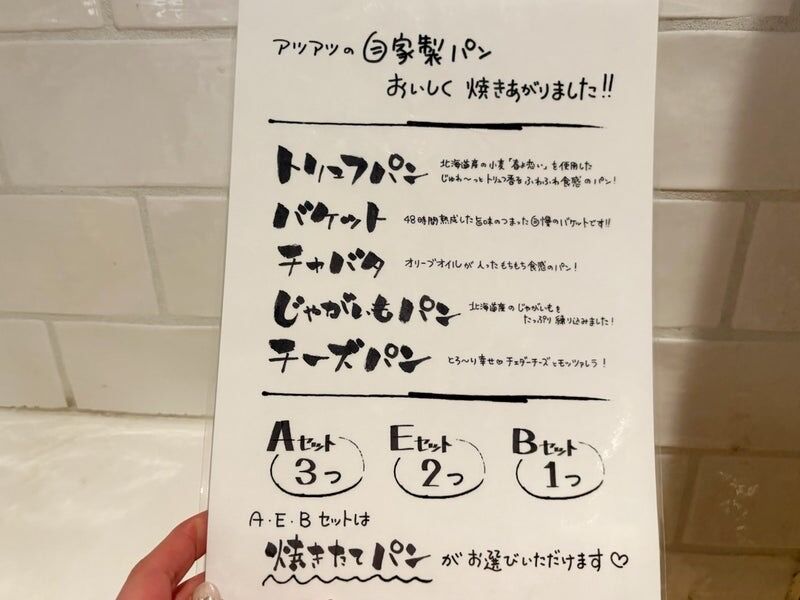 アツアツの 自家製パン
おいしく 焼きあがりました!!
トリュフパン
北海道産の小麦「春よ恋い」を使用した
じゅわ〜っとトリュフ香るふわふわ食感のパン!
バケット
48時間熟成した旨味のつまった自慢のバケットです!!
チャバタ
オリーブオイルが入ったもちもち食感のパン!
じゃがいもパン
北海道産のじゃがいもを
たっぷり練り込みました!
チーズパン
とろ〜り幸せ♡チェダーチーズとモッツァレラ!
Aセット Eセット Bセット
3つ 2つ 1つ
A・E・Bセットは
焼きたてパンがお選びいただけます♡